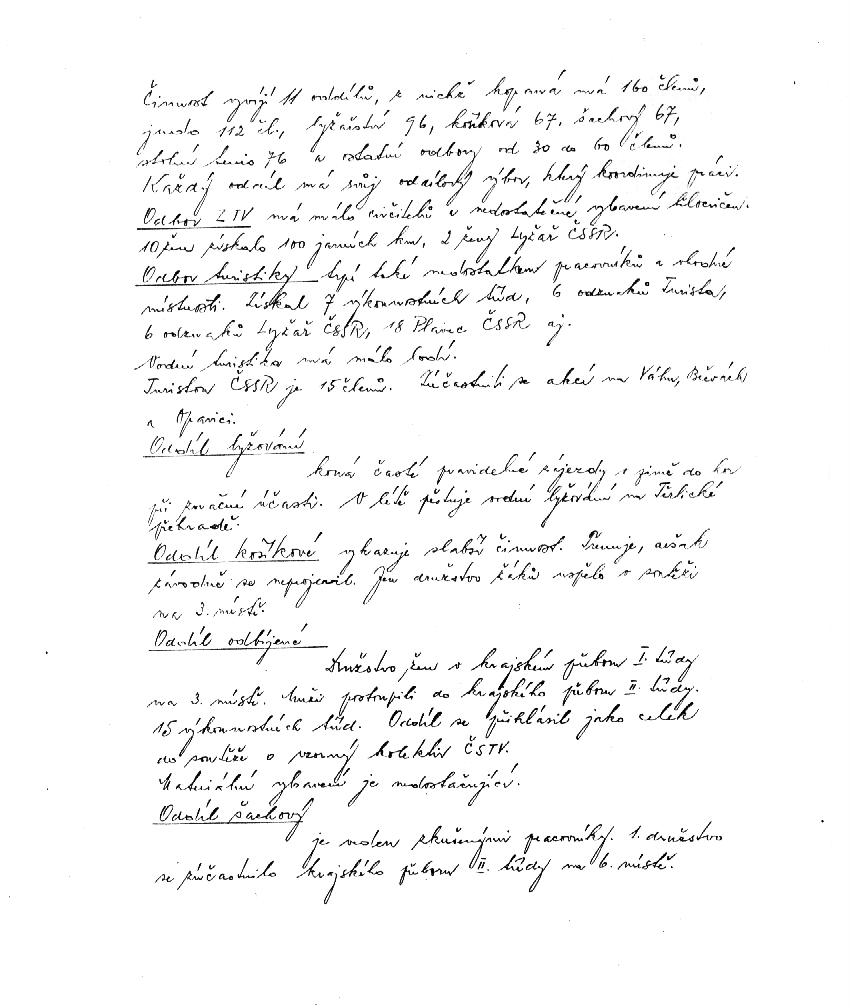 Činnost vyvíjí 11 oddílů, z nichž kopaná má 160 členů,
judo 112 čl., lyžařství 96, košíková 67, šachový 67,
stolní tenis 76 a ostatní odbory od 30 do 60 členů.
Každý oddíl má svůj oddílový výbor, který koordinuje práci.
Odbor ZTV má málo cvičitelů a nedostatečné vybavení tělocvičen.
10 žen získalo 100 jarních km, 2 ženy Lyžař ČSSR.
Odbor turistiky trpí také nedostatkem pracovníků a vhodné
místnosti. Získal 7 výkonnostních tříd, 6 odznaků Turista,
6 odznaků Lyžař ČSSR, 18 Plavec ČSSR aj.
Vodní turistika má málo lodí.
Turistou ČSSR je 15 členů. Zúčastnili se akcí na Váhu, Bečvách
a Opavici.
Oddíl lyžování
koná časté pravidelné zájezdy v zimě do hor
při značné účasti. V létě pěstuje vodní lyžování na Těrlické
přehradě.
Oddíl košíkové vykazuje slabší činnost. Trenuje, avšak
závodně se neprojevil. Jen družstvo žáků uspělo v soutěži
na 3. místě.
Oddíl odbíjené
Družstvo žen v krajském přeboru I. třídy
na 3. místě. Muži postoupili do krajského přeboru II. třídy.
15 výkonnostních tříd. Oddíl se přihlásil jako celek
do soutěže o vzorný kolektiv ČSTV.
Materiální vybavení je nedostačující.
Oddíl šachový
je veden zkušenými pracovníky. 1. družstvo
se zúčastnilo krajského přeboru II. třídy na 6. místě.